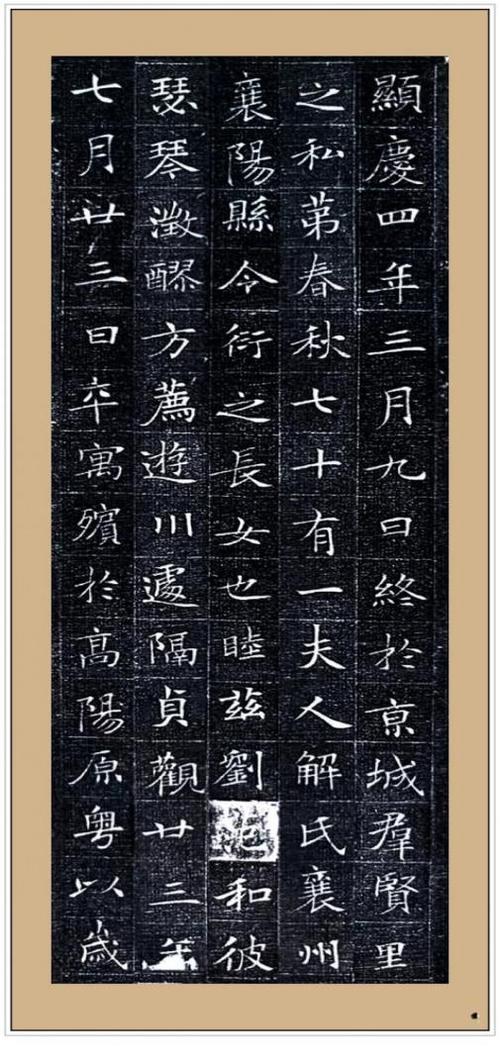 顯慶四年三月九日終於京城羣賢里
之私苐春秋七十有一夫人解氏襄州
襄陽縣令衍之長女也睦茲劉和彼
瑟琴澂醪方薦遊川遽隔貞觀廿三年
七月廿三日卒寓殯於高陽原粤以歲